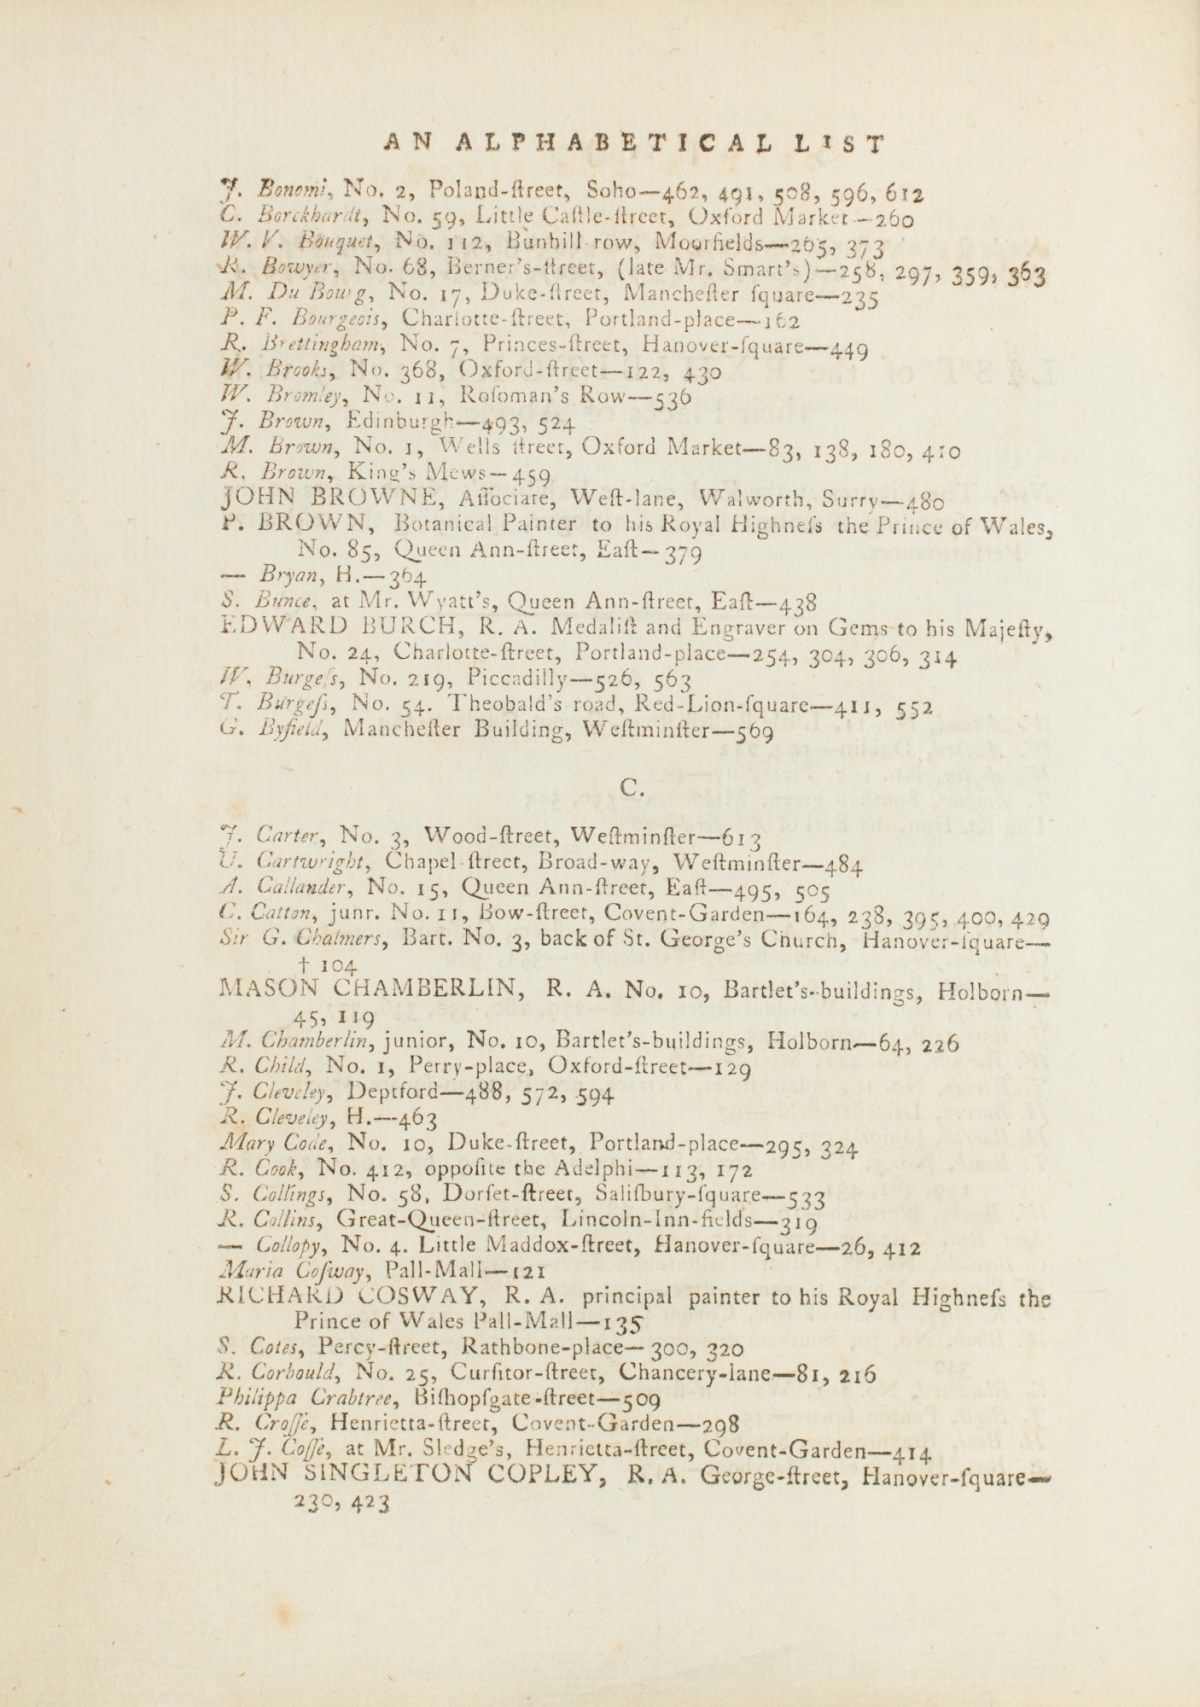 AN ALPHABETICAL LIST
J. Bonomi, No. 2, Poland-ſtreet, Soho—462, 491, 508, 596, 612
C. Borckhardt, No. 59, Little Caſtle-ſtreet, Oxford Market—260
W. V. Bouquet, No. 112, Bunhill row, Moorfields—265, 373
R. Bowyer, No. 68, Berner's-ſtreet, (late Mr. Smart's)—258, 297, 359, 363
M. Du Bourg, No. 17, Duke-ſtreet, Mancheſter ſquare—235
P. F. Bourgeois, Charlotte-ſtreet, Portland-place—162
R. Brettingham, No. 7, Princes-ſtreet, Hanover-ſquare—449
W. Brooks, No. 368, Oxford-ſtreet—122, 430
W. Bromley, No. 11, Roſoman's Row—536
J. Brown, Edinburgh—493, 524
M. Brown, No. 1, Wells ſtreet, Oxford Market—83, 138, 180, 410
R. Brown, King's Mews—459
JOHN BROWNE, Aſſociate, Weſt-lane, Walworth, Surry—480
P. BROWN, Botanical Painter to his Royal Highneſs the Prince of Wales,
No. 85, Queen Ann-ſtreet, Eaſt—379
— Bryan, H.—364
S. Bunce, at Mr. Wyatt's, Queen Ann-ſtreet, Eaſt—438
EDWARD BURCH, R. A. Medaliſt and Engraver on Gems to his Majeſty,
No. 24, Charlotte-ſtreet, Portland-place—254, 304, 306, 314
W. Burgeſs, No. 219, Piccadilly—526, 563
T. Burgeſs, No. 54. Theobald's road, Red-Lion-ſquare—411, 552
G. Byfield, Mancheſter Building, Weſtminſter—569
C.
J. Carter, No. 3, Wood-ſtreet, Weſtminſter—613
U. Cartwright, Chapel-ſtreet, Broad-way, Weſtminſter—484
A. Callander, No. 15, Queen Ann-ſtreet, Eaſt—495, 505
C. Catton, junr. No. 11, Bow-ſtreet, Covent-Garden—164, 238, 395, 400, 429
Sir G. Chalmers, Bart. No. 3, back of St. George's Church, Hanover-ſquare—
† 104
MASON CHAMBERLIN, R. A. No. 10, Bartlet's-buildings, Holborn—
45, 119
M. Chamberlin, junior, No. 10, Bartlet's-buildings, Holborn—64, 226
R. Child, No. 1, Perry-place, Oxford-ſtreet—129
J. Cleveley, Deptford—488, 572, 594
R. Cleveley, H.—463
Mary Code, No. 10, Duke-ſtreet, Portland-place—295, 324
R. Cook, No. 412, oppoſite the Adelphi—113, 172
S. Collings, No. 58, Dorſet-ſtreet, Saliſbury-ſquare—533
R. Collins, Great-Queen-ſtreet, Lincoln-Inn-fields—319
— Collopy, No. 4. Little Maddox-ſtreet, Hanover-ſquare—26, 412
Maria Coſway, Pall-Mall—121
RICHARD COSWAY, R. A. principal painter to his Royal Highneſs the
Prince of Wales Pall-Mall—135
S. Cotes, Percy-ſtreet, Rathbone-place—300, 320
R. Corbould, No. 25, Curſitor-ſtreet, Chancery-lane—81, 216
Philippa Crabtree, Biſhopſgate-ſtreet—509
R. Croſſe, Henrietta-ſtreet, Covent-Garden—298
L. J. Coſſe, at Mr. Sledge's, Henrietta-ſtreet, Covent-Garden—414
JOHN SINGLETON COPLEY, R. A. George-ſtreet, Hanover-ſquare—
230, 423